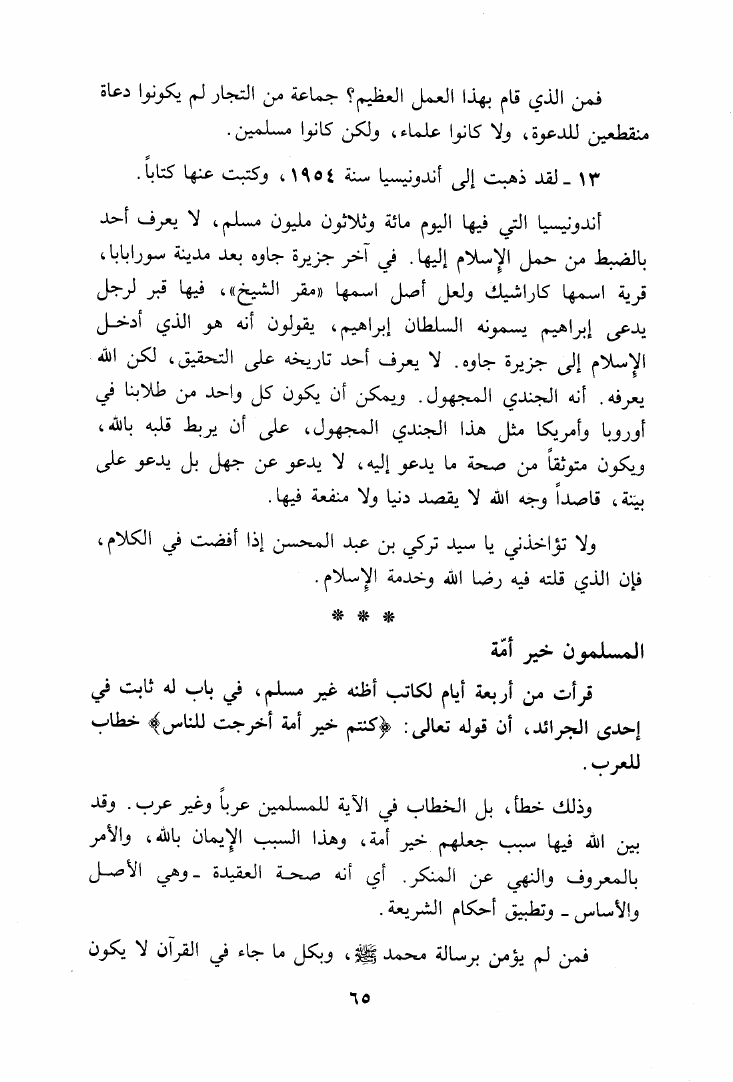 فمن الذي قام بهذا العمل العظيم؟ جماعة من التجار لم يكونوا دعاة
منقطعين للدعوة، ولا كانوا علماء، ولكن كانوا مسلمين.
١٣ ـ لقد ذهبت إلى أندونيسيا سنة ١٩٥٤، وكتبت عنها كتاباً.
أندونيسيا التي فيها اليوم مائة وثلاثون مليون مسلم، لا يعرف أحد
بالضبط من حمل الإسلام إليها. في آخر جزيرة جاوه بعد مدينة سورابابا،
قرية اسمها كاراشيك ولعل أصل اسمها «مقر الشيخ»، فيها قبر لرجل
يدعى إبراهيم يسمونه السلطان إبراهيم، يقولون أنه هو الذي أدخل
الإسلام إلى جزيرة جاوه. لا يعرف أحد تاريخه على التحقيق، لكن الله
يعرفه. أنه الجندي المجهول. ويمكن أن يكون كل واحد من طلابنا في
أوروبا وأمريكا مثل هذا الجندي المجهول، على أن يربط قلبه بالله،
ويكون متوثقاً من صحة ما يدعو إليه، لا يدعو عن جهل بل يدعو على
بينة، قاصداً وجه الله لا يقصد دنيا ولا منفعة فيها.
ولا تؤاخذني يا سيد تركي بن عبد المحسن إذا أفضت في الكلام،
فإن الذي قلته فيه رضا الله وخدمة الإسلام.
* * *
المسلمون خير أمّة
قرأت من أربعة أيام لكاتب أظنه غير مسلم، في باب له ثابت في
إحدى الجرائد، أن قوله تعالى: ﴿كنتم خير أمة أخرجت للناس﴾ خطاب
للعرب.
وذلك خطأ، بل الخطاب في الآية للمسلمين عرباً وغير عرب. وقد
بين الله فيها سبب جعلهم خير أمة، وهذا السبب الإيمان بالله، والأمر
بالمعروف والنهي عن المنكر. أي أنه صحة العقيدة ـ وهي الأصل
والأساس ـ وتطبيق أحكام الشريعة.
فمن لم يؤمن برسالة محمد ﷺ، وبكل ما جاء في القرآن لا يكون
٦٥